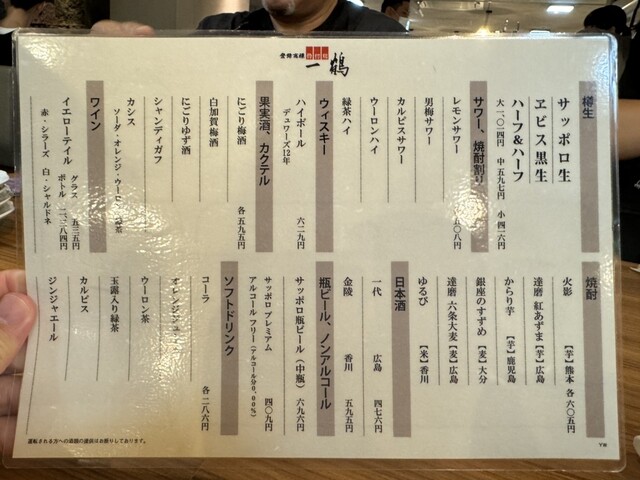 登録商標 骨付鳥
一鶴
樽生
サッポロ生
ヱビス黒生
ハーフ&ハーフ
大 一〇二四円 中 五九七円 小 四二六円
サワー、焼酎割り
レモンサワー 各 五〇八円
男梅サワー
カルピスサワー
ウーロンハイ
緑茶ハイ
ウィスキー
ハイボール 六二九円
デュワーズ12年
果実酒、カクテル
にごり梅酒 各 五九五円
白加賀梅酒
にごりゆず酒
シャンディガフ
カシス
ソーダ・オレンジ・ウーロン・緑茶
ワイン
イエローテイル グラス 五三五円
ボトル 二、三八四円
赤・シラーズ 白・シャルドネ
焼酎
火影 【芋】熊本 各 六〇五円
達磨 紅あずま 【芋】広島
からり芋 【芋】鹿児島
銀座のすずめ 【麦】大分
達磨 六条大麦 【麦】広島
ゆるび 【米】香川
日本酒
一代 広島 四七六円
金陵 香川 五九五円
瓶ビール、ノンアルコール
サッポロ瓶ビール (中瓶) 六九六円
サッポロ プレミアム
アルコール フリー (アルコール分0.00%) 四〇九円
ソフトドリンク
コーラ 各 二八六円
オレンジジュース
ウーロン茶
玉露入り緑茶
カルピス
ジンジャエール
運転される方への酒類の提供はお断りしております。
YM